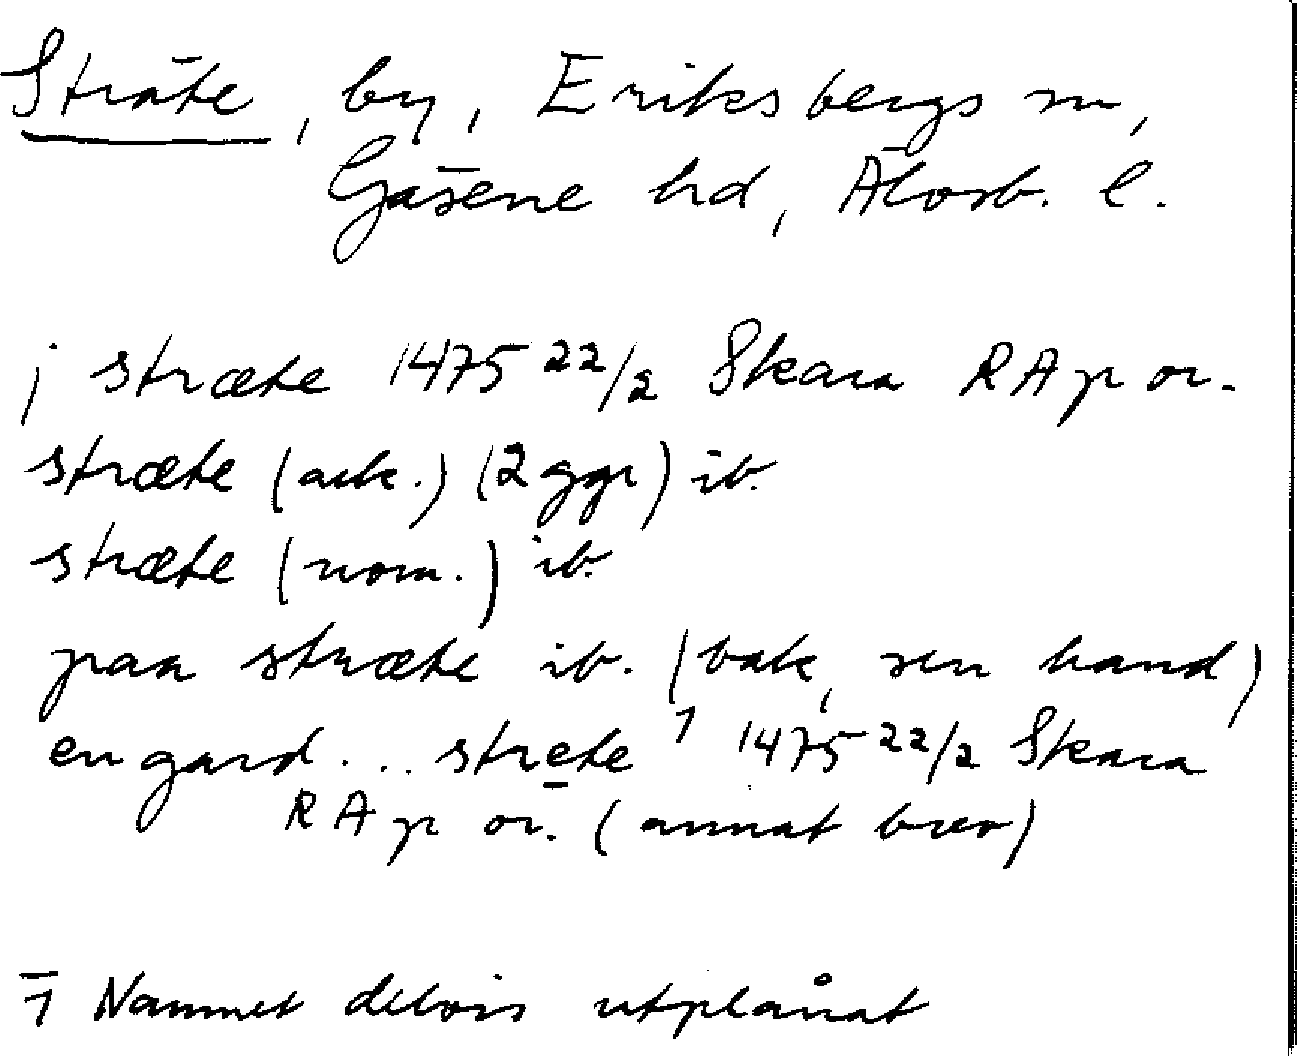 Sträte, by, Eriksbergs sn,
Gäsene hd, Älvsb. l.
j stræte 1475 22/2 Skara RAp or.
stræte (ack.) (2 ggr) ib.
stræte (nom.) ib.
paa stræte ib. (bak, sen hand)
en gard... strete 1 1475 22/2 Skara
RAp or. (annat brev)
1 Namnet delvis utplånat